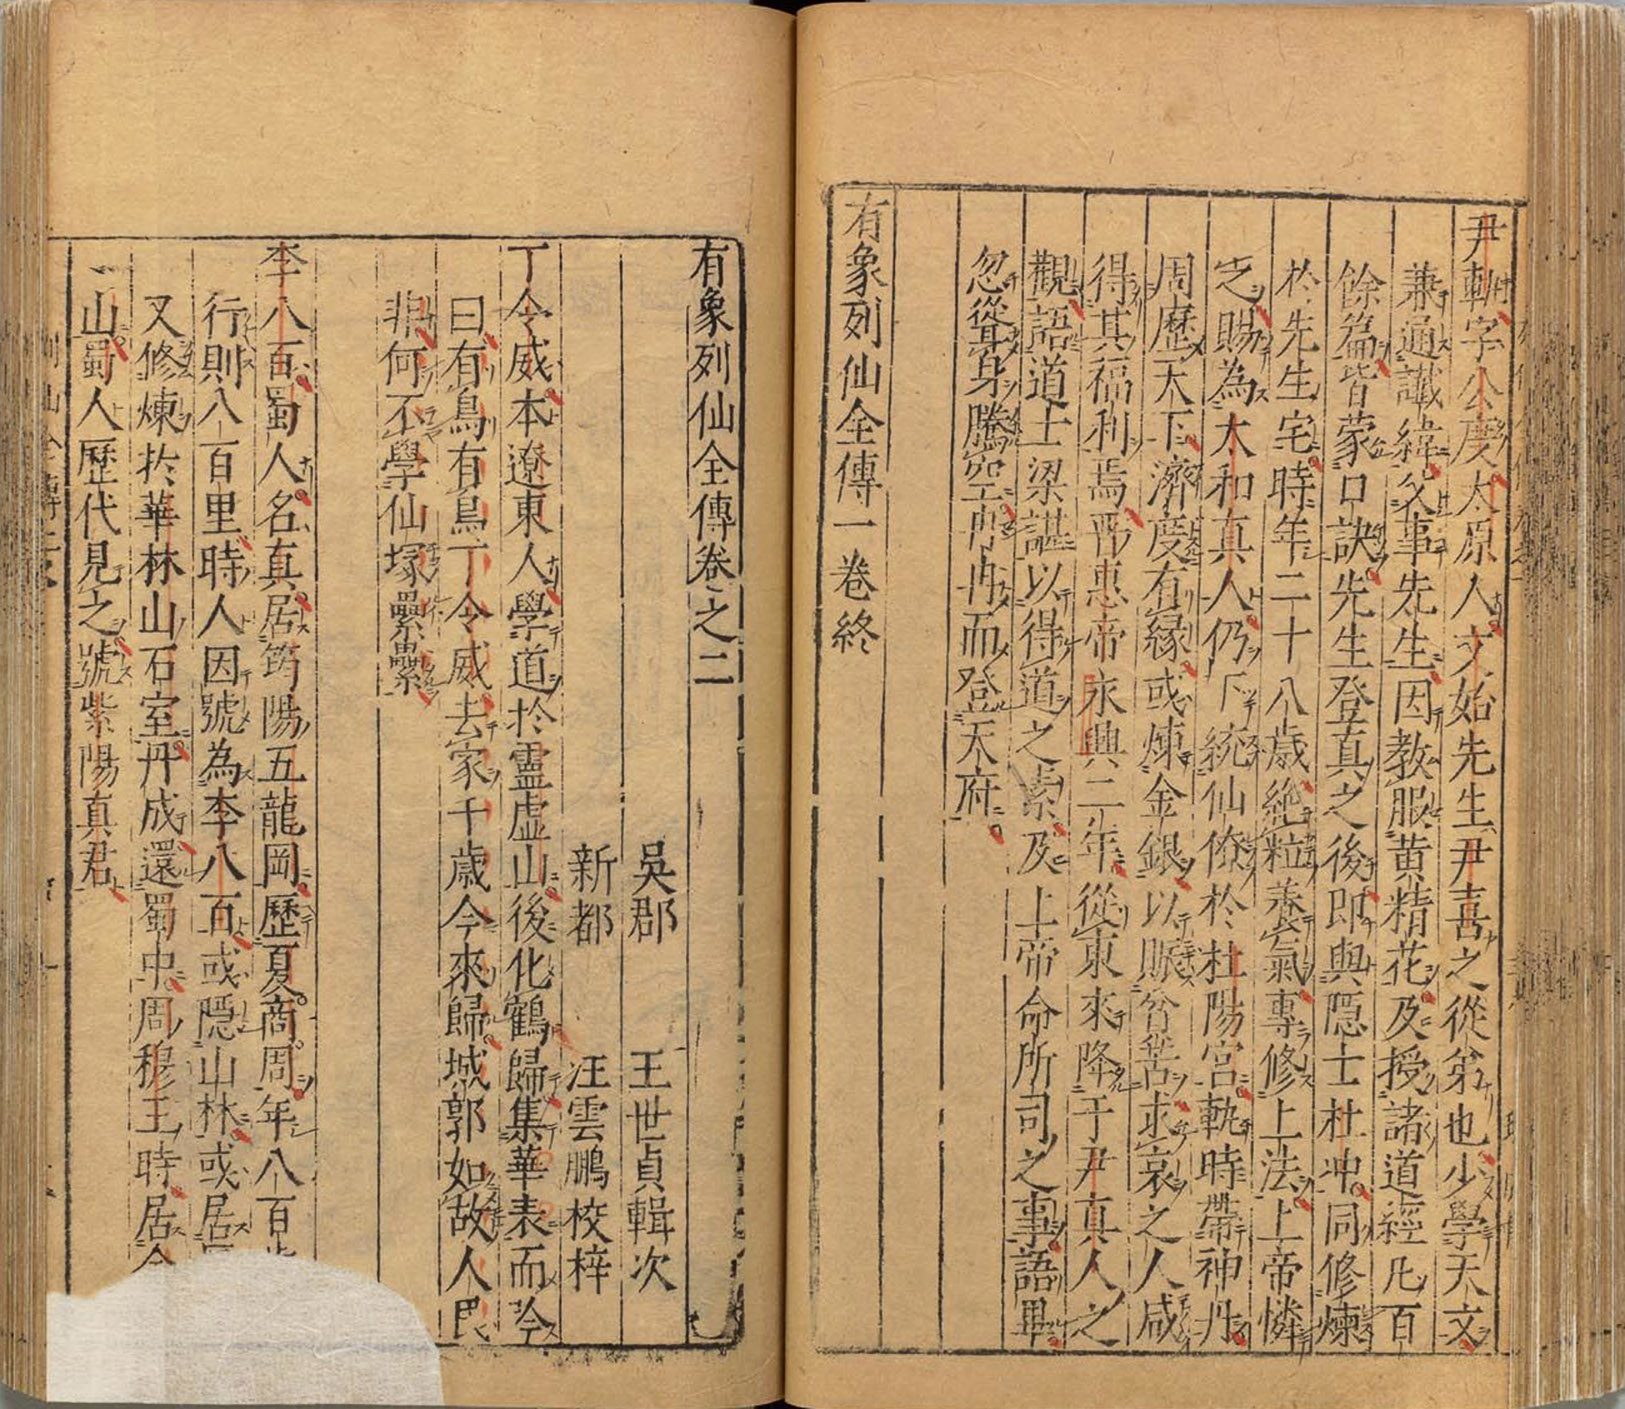 尹軌字公度太原人文始先生尹喜之從弟也少學天文
兼通讖緯父事先生因教服黄精花及授諸道經凡百
餘篇皆蒙口訣先生登真之後即與隠士杜冲同修煉
於先生宅時年二十八歳絶粒養氣專修上法上帝憐
之賜為太和真人仍下統仙僚於杜陽宮軌時帶神丹
周歷天下濟度有縁或煉金銀以賑貧苦求哀之人咸
得其福利焉晋惠帝永興二年從東來降于尹真人之
觀語道士梁諶以得道之素及上帝命所司之事語畢
忽聳身騰空冉冉而登天府
有象列仙全傳一卷終
有象列仙全傳卷之二
吳郡 王世貞輯次
新都 汪雲鵬校梓
丁令威本遼東人學道於靈虚山後化鶴歸集華表而吟
曰有鳥有鳥丁令威去家千歳今來歸城郭如故人民
非何不學仙塚纍纍
李八百蜀人名真居筠陽五龍岡歷夏商周年八百
行則八百里時人因號為李八百或隠山林或居
又修煉於華林山石室丹成還蜀中周穆王時居
山蜀人歷代見之號紫陽真君